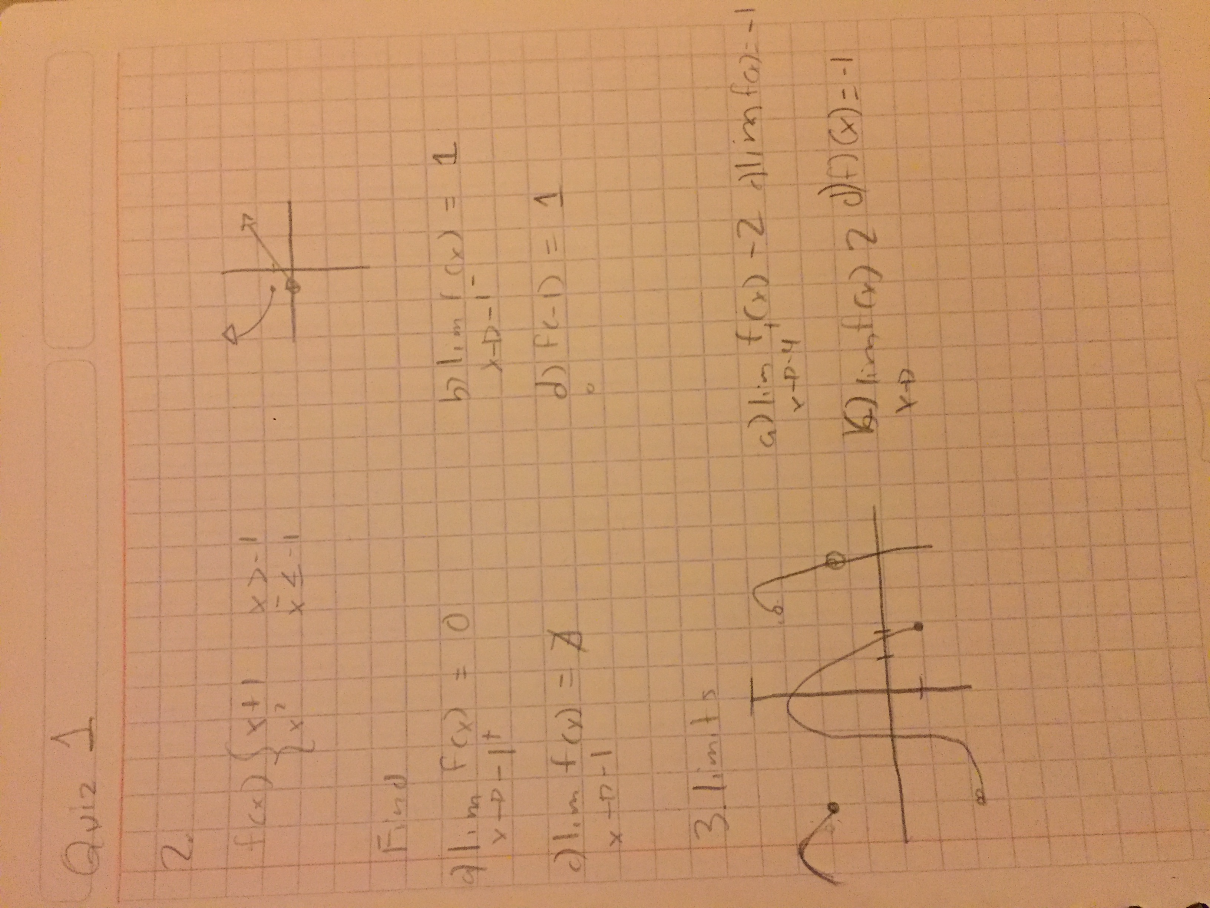 Quiz 1
2.
f(x) { x+1 x>-1
{ x² x≤-1
Find
a) lim f(x) = 0 b) lim f(x) = 1
x→-1⁺ x→-1⁻
c) lim f(x) = ∄ d) f(-1) = 1
x→-1
3. limits
a) lim f(x) -2 c) lim f(x)=-1
x→-4⁺
b) lim f(x) 2 d) f(x)=-1
x→